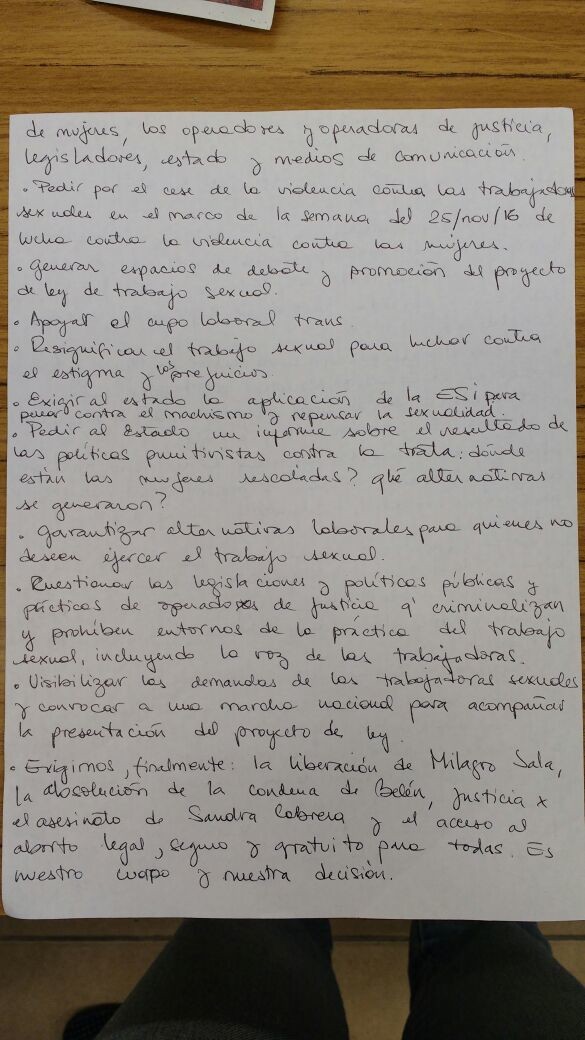 de mujeres, los operadores y operadoras de justicia,
legisladores, estado y medios de comunicación.
• Pedir por el cese de la violencia contra las trabajadoras
sexuales en el marco de la semana del 25/nov/16 de
lucha contra la violencia contra las mujeres.
• Generar espacios de debate y promoción del proyecto
de ley de trabajo sexual.
• Apoyar el cupo laboral trans.
• Resignificar el trabajo sexual para luchar contra
el estigma y los prejuicios.
• Exigir al estado la aplicación de la ESI para
pelear contra el machismo y repensar la sexualidad.
• Pedir al Estado un informe sobre el resultado de
las políticas punitivistas contra la trata: dónde
están las mujeres rescatadas? qué alternativas
se generaron?
• Garantizar alternativas laborales para quienes no
deseen ejercer el trabajo sexual.
• Cuestionar las legislaciones y políticas públicas y
prácticas de operadores de justicia q' criminalizan
y prohiben entornos de la práctica del trabajo
sexual, incluyendo la voz de las trabajadoras.
• Visibilizar las demandas de las trabajadoras sexuales
y convocar a una marcha nacional para acompañar
la presentación del proyecto de ley.
• Exigimos, finalmente: la liberación de Milagro Sala,
la absolución de la condena de Belén, justicia x
el asesinato de Sandra Cabrera y el acceso al
aborto legal, seguro y gratuito para todas. Es
nuestro cuerpo y nuestra decisión.